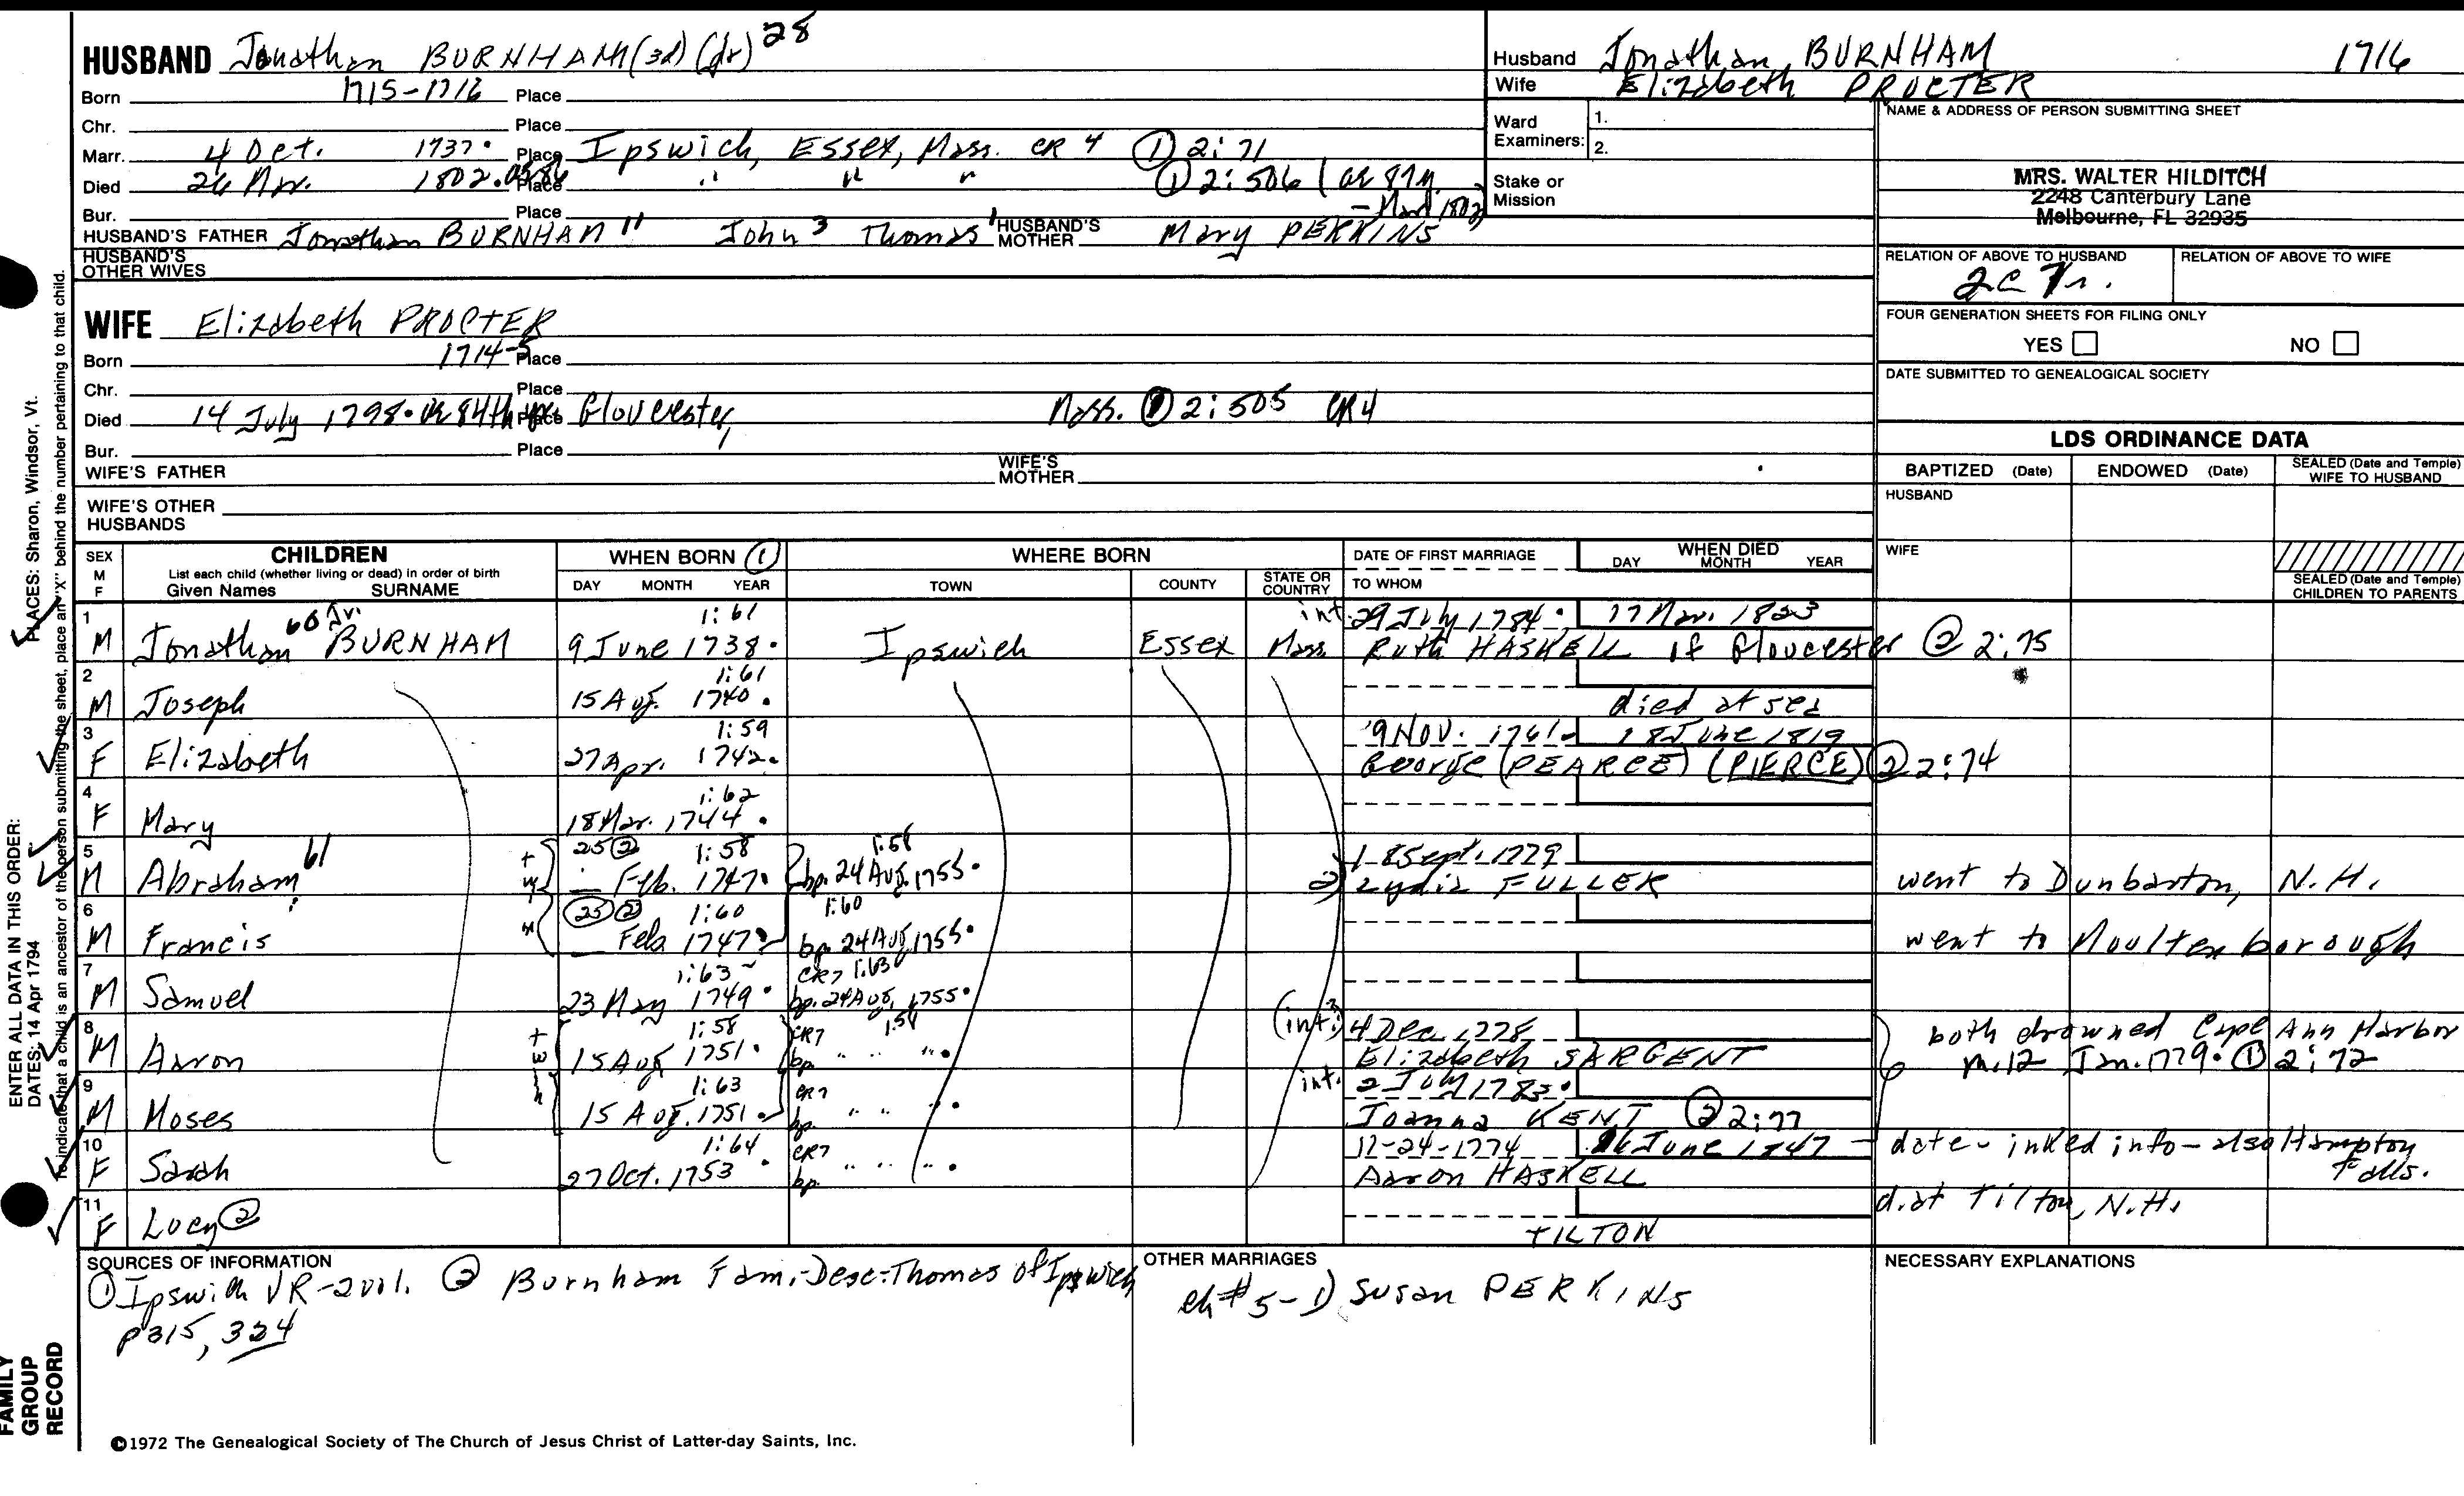 HUSBAND Jonathan BURNHAM (3d) (Jr) 28
Born 1715-1716 Place
Chr. Place
Marr. 4 Oct. 1737. Place Ipswich, Essex, Mass. CR 4 ① 2:71
Died 26 1802. Place " " " ① 2:506 (ae 87y.
1802)
Bur. Place
HUSBAND'S FATHER Jonathan BURNHAM 11 John 3 Thomas 1 HUSBAND'S MOTHER Mary PERKINS
HUSBAND'S OTHER WIVES
WIFE Elizabeth PROCTER
Born 1714-5 Place
Chr. Place
Died 14 July 1798. ae 84th yr. Place Gloucester, Mass. ① 2:505 CR4
Bur. Place
WIFE'S FATHER WIFE'S MOTHER
WIFE'S OTHER HUSBANDS
Husband Jonathan BURNHAM 1716
Wife Elizabeth PROCTER
Ward Examiners: 1.
2.
Stake or Mission
NAME & ADDRESS OF PERSON SUBMITTING SHEET
MRS. WALTER HILDITCH
2248 Canterbury Lane
Melbourne, FL 32935
RELATION OF ABOVE TO HUSBAND RELATION OF ABOVE TO WIFE
2c 7r.
FOUR GENERATION SHEETS FOR FILING ONLY
YES NO
DATE SUBMITTED TO GENEALOGICAL SOCIETY
LDS ORDINANCE DATA
BAPTIZED (Date) ENDOWED (Date) SEALED (Date and Temple) WIFE TO HUSBAND
HUSBAND
WIFE
SEALED (Date and Temple) CHILDREN TO PARENTS
SEX M F
CHILDREN
List each child (whether living or dead) in order of birth
Given Names SURNAME
WHEN BORN ①
DAY MONTH YEAR
WHERE BORN
TOWN COUNTY STATE OR COUNTRY
DATE OF FIRST MARRIAGE
TO WHOM
WHEN DIED
DAY MONTH YEAR
1 60 Jr. 1:61 int. 29 July 1784. 17 Mar. 1823
M Jonathan BURNHAM 9 June 1738. Ipswich Essex Mass. Ruth HASKELL of Gloucester ② 2:75
2 1:61
M Joseph 15 Aug. 1740. died at sea
3 1:59 19 Nov. 1761. 18 June 1819
F Elizabeth 27 Apr. 1742. George (PEARCE) (PIERCE) ② 2:74
4 1:62
F Mary 18 Mar. 1744.
5 61 25 ② 1:58 1:58 18 Sept. 1779
M Abraham Feb. 1747. bp. 24 Aug. 1755. 2) Lydia FULLER went to Dunbarton, N.H.
6 25 ② 1:60 1:60
M Francis Feb. 1747. bp. 24 Aug. 1755. went to Moultenborough
7 1:63 CR7 1:63
M Samuel 23 May 1749. bp. 24 Aug. 1755.
8 1:58 CR7 1:58 (int.) 4 Dec. 1778 both drowned Cape Ann Harbor
M Aaron 15 Aug. 1751. bp. " " ". Elizabeth SARGENT m. 12 Jan. 1779. ① 2:72
9 1:63 CR7 int. 2 July 1783.
M Moses 15 Aug. 1751. bp. " " ". Joanna KENT ② 2:77
10 1:64 CR7 11-24-1774 26 June 1847 date - inked info - also Hampton Falls.
F Sarah 27 Oct. 1753. bp. " " ". Aaron HASKELL
11 d. at Tilton, N.H.
F Lucy ② TILTON
SOURCES OF INFORMATION
① Ipswich VR-2vol. ② Burnham Fam.-Desc.-Thomas of Ipswich
p315, 324
OTHER MARRIAGES
ch #5 - 1) Susan PERKINS
NECESSARY EXPLANATIONS
©1972 The Genealogical Society of The Church of Jesus Christ of Latter-day Saints, Inc.
ENTER ALL DATA IN THIS ORDER:
DATES: 14 Apr 1794
PLACES: Sharon, Windsor, Vt.
To indicate that a child is an ancestor of the person submitting the sheet, place an "X" behind the number pertaining to that child.
FAMILY
GROUP
RECORD